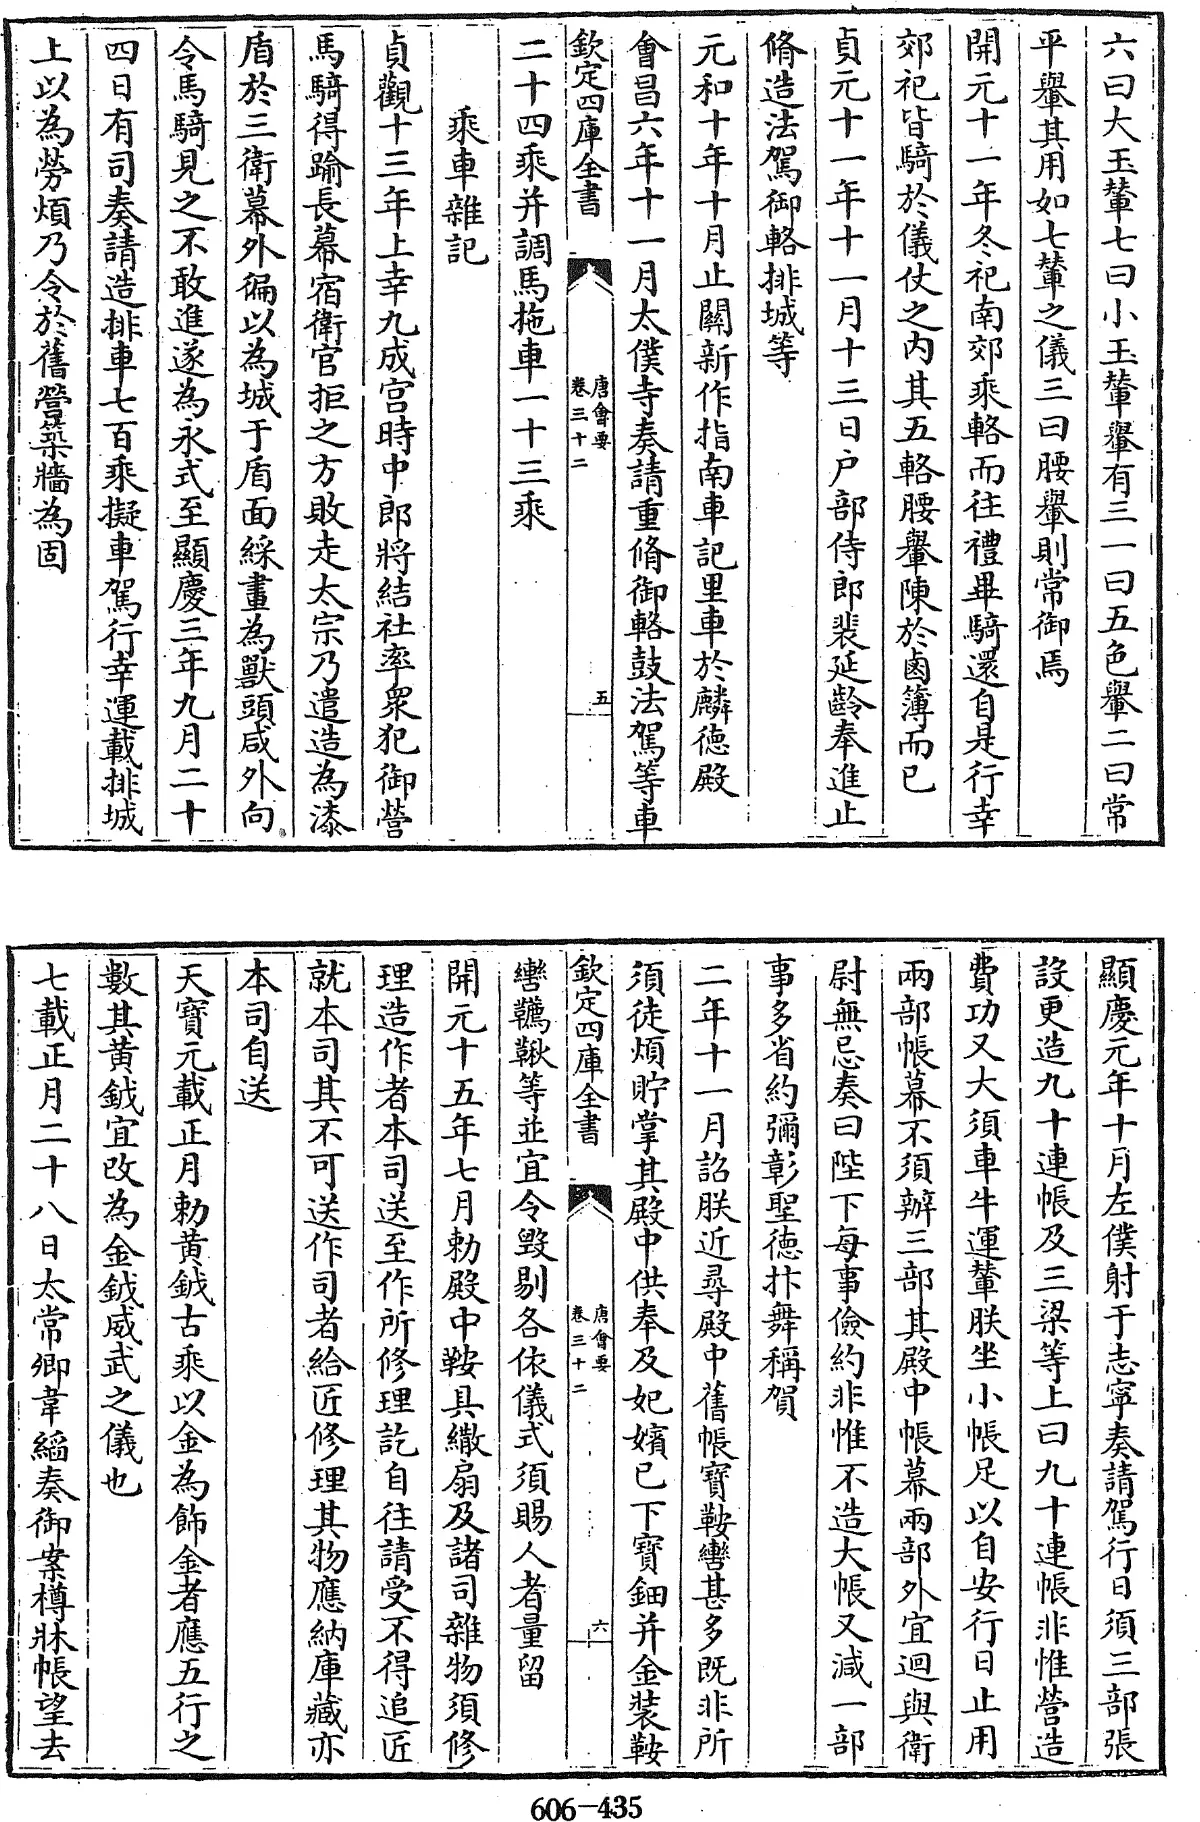 六曰大玉輦七曰小玉輦轝有三一曰五色轝二曰常
平轝其用如七輦之儀三曰腰轝則常御焉
開元十一年冬祀南郊乘輅而往禮畢騎還自是行幸
郊祀皆騎於儀仗之内其五輅腰轝陳於鹵簿而已
貞元十一年十一月十三日户部侍郎裴延齡奉進止
脩造法駕御輅排城等
元和十年十月止關新作指南車記里車於麟德殿
會昌六年十一月太僕寺奏請重脩御輅鼓法駕等車
欽定四庫全書
唐會要
卷三十二
五
二十四乘并調馬拖車一十三乘
乘車雜記
貞觀十三年上幸九成宫時中郎將結社率衆犯御營
馬騎得踰長幕宿衛官拒之方敗走太宗乃遣造為漆
盾於三衛幕外徧以為城于盾面綵畫為獸頭咸外向
令馬騎見之不敢進遂為永式至顯慶三年九月二十
四日有司奏請造排車七百乘擬車駕行幸運載排城
上以為勞煩乃令於舊營築牆為固
顯慶元年十月左僕射于志寧奏請駕行日須三部張
設更造九十連帳及三梁等上曰九十連帳非惟營造
費功又大須車牛運輦朕坐小帳足以自安行日止用
兩部帳幕不須辦三部其殿中帳幕兩部外宜迴與衛
尉無忌奏曰陛下每事儉約非惟不造大帳又減一部
事多省約彌彰聖德抃舞稱賀
二年十一月詔朕近尋殿中舊帳寶鞍轡甚多既非所
須徒煩貯掌其殿中供奉及妃嬪已下寶鈿并金裝鞍
欽定四庫全書
唐會要
卷三十二
六
轡韉鞦等並宜令毁剔各依儀式須賜人者量留
開元十五年七月勅殿中鞍具繖扇及諸司雜物須修
理造作者本司送至作所修理訖自往請受不得追匠
就本司其不可送作司者給匠修理其物應納庫藏亦
本司自送
天寶元載正月勅黄鉞古乘以金為飾金者應五行之
數其黄鉞宜改為金鉞威武之儀也
七載正月二十八日太常卿韋縚奏御案樽牀帳望去
606-435